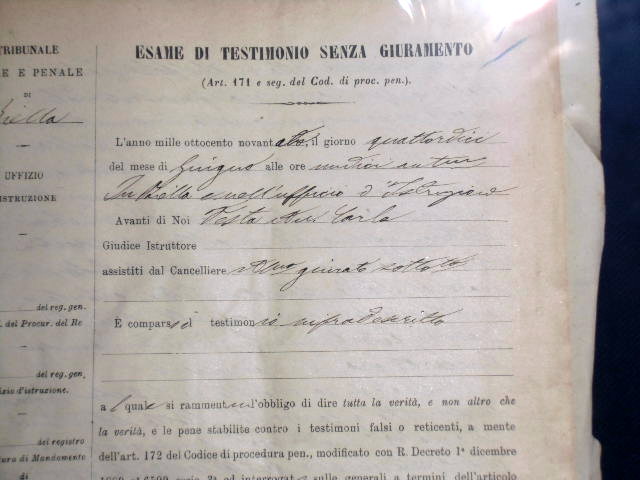 TRIBUNALE
E E PENALE
DI
Biella
UFFIZIO
ISTRUZIONE
del reg. gen.
del Procur. del Re
del reg. gen.
izio d'istruzione.
del registro
tura di Mandamento
di
ESAME DI TESTIMONIO SENZA GIURAMENTO
(Art. 171 e seg. del Cod. di proc. pen.).
L'anno mille ottocento novant il giorno quattordici
del mese di Giugno alle ore undici
In Biella e nell'ufficio d'Istruzione
Avanti di Noi Testa Carlo
Giudice Istruttore
assistiti dal Cancelliere giurato
È comparso il testimonio infradescritto
a l quale si rammenta l'obligo di dire tutta la verità, e non altro che
la verità, e le pene stabilite contro i testimoni falsi o reticenti, a mente
dell'art. 172 del Codice di procedura pen., modificato con R. Decreto 1º dicembre
sulle generali a termini dell'articolo